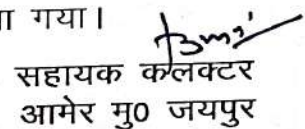 गया।
सहायक कलक्टर
आमेर मु0 जयपुर